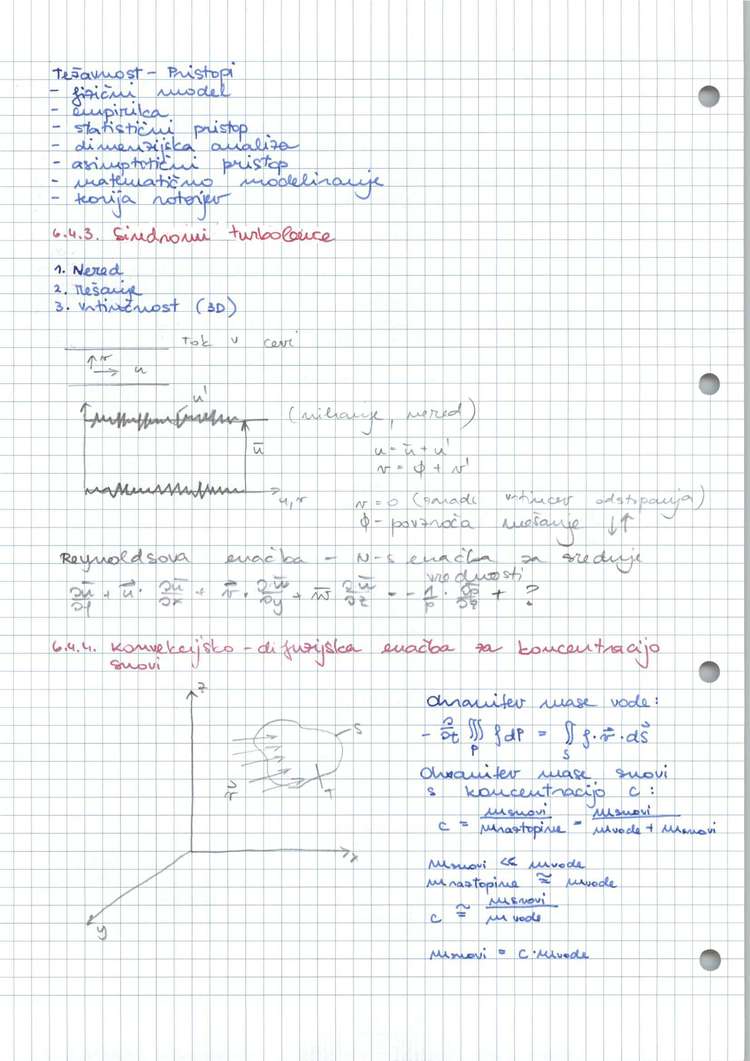 Težavnost - Pristopi
- fizični model
- empirika
- statistični pristop
- dimenzijska analiza
- asimptotični pristop
- matematično modeliranje
- teorija
6.4.3. Sindromi turbolence
1. Nered
2. Mešanje
3. Vrtinčnost (3D)
Tok v cevi
↑ v
→ u
u'
(nihanje, nered)
ū
u = ū + u'
v = ϕ + v'
u, v
v = 0 (zaradi vrtincev odstopanja)
ϕ - povzroča mešanje ↓↑
Reynoldsova enačba - N-S enačba za srednje
vrednosti
6.4.4. Konvekcijsko-difuzijska enačba za koncentracijo
snovi
z
S
v⃗
x
y
Ohranitev mase vode:
- ∂/∂t ∭_P ρ dP = ∬_S ρ · v⃗ · dS⃗
Ohranitev mase snovi
s koncentracijo c :
c = m snovi / m raztopine = m snovi / m vode + m snovi
m snovi << m vode
m raztopine ≅ m vode
c ≅ m snovi / m vode
m snovi = c · m vode